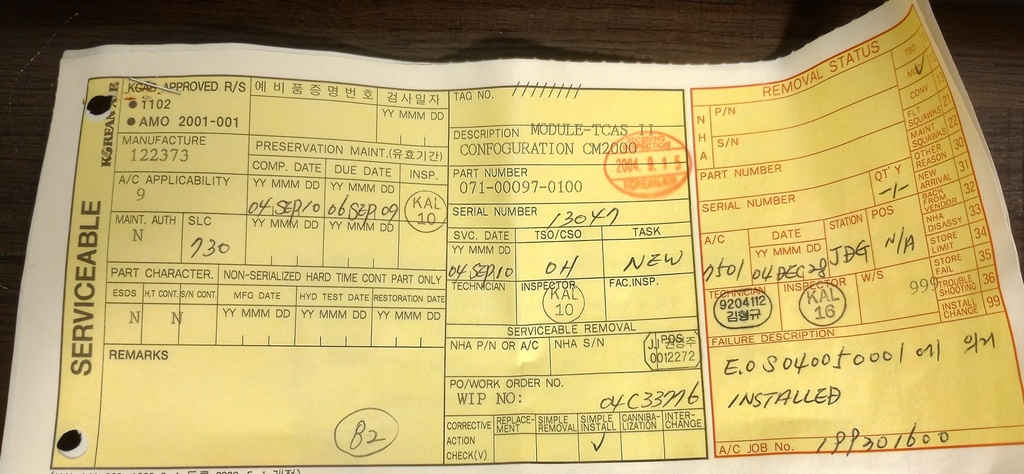 KOREAN AIR
SERVICEABLE
KCAB APPROVED R/S
● 1102
● AMO 2001-001
예 비 품 증 명 번 호
검 사 일 자
YY MMM DD
MANUFACTURE
122373
PRESERVATION MAINT.(유효기간)
COMP. DATE
DUE DATE
INSP.
A/C APPLICABILITY
9
YY MMM DD
YY MMM DD
04 SEP 10
06 SEP 09
KAL
10
MAINT. AUTH
N
SLC
730
YY MMM DD
YY MMM DD
PART CHARACTER.
NON-SERIALIZED HARD TIME CONT PART ONLY
ESDS
H.T CONT.
S/N CONT.
MFG DATE
HYD TEST DATE
RESTORATION DATE
N
N
YY MMM DD
YY MMM DD
YY MMM DD
REMARKS
B2
TAG NO.
DESCRIPTION MODULE-TCAS II
CONFOGURATION CM2000
2004. 9. 15
KOREAN AIR
PART NUMBER
071-00097-0100
SERIAL NUMBER
13047
SVC. DATE
TSO/CSO
TASK
YY MMM DD
04 SEP 10
OH
NEW
TECHNICIAN
INSPECTOR
FAC.INSP.
KAL
10
SERVICEABLE REMOVAL
NHA P/N OR A/C
NHA S/N
POS
0012272
PO/WORK ORDER NO.
WIP NO:
04C33776
CORRECTIVE
ACTION
CHECK(V)
REPLACE-
MENT
SIMPLE
REMOVAL
SIMPLE
INSTALL
CANNIBA-
LIZATION
INTER-
CHANGE
✓
REMOVAL STATUS
NHA
P/N
S/N
PART NUMBER
SERIAL NUMBER
QT'Y
-1-
A/C
DATE
STATION
POS
YY MMM DD
7501
04 DEC 28
JDG
N/A
TECHNICIAN
INSPECTOR
W/S
9204112
김형규
KAL
16
999
CONV
FLT
SQUAWKS 21
MAINT
SQUAWKS 22
OTHER
REASON 30
NEW
ARRIVAL 31
BACK FROM
VENDOR 32
NHA
DISASSY 33
STORE
LIMIT 34
STORE
FAIL 35
TROUBLE
SHOOTING 36
INSTALL
CHANGE 99
FAILURE DESCRIPTION
E.O S040050001 에 의거
INSTALLED
A/C JOB No. 199301600